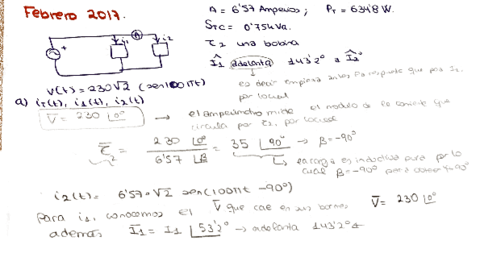 Febrero 2017.
A = 6'57 Amperios; Pr = 634'8 W.
STC = 0'75 kVa.
Z2 una bobina
I1 adelanta 143'2° a I2
es decir empieza antes
v(t) = 230√2 (sen 100πt)
a) iT(t), i1(t), i2(t)
V = 230 |0°
el amperímetro mide el modulo de la corriente que
circula por Z2, por lo cual
Z2 = 230 |0° / 6'57 |β = 35 |90° → β = -90°
la carga es inductiva pura por lo
cual β = -90°
i2(t) = 6'57·√2 sen(100πt - 90°)
Para i1, conocemos el V que cae en sus bornes V = 230 |0°
además I1 = I1 |53'2° → adelanta 143'2°